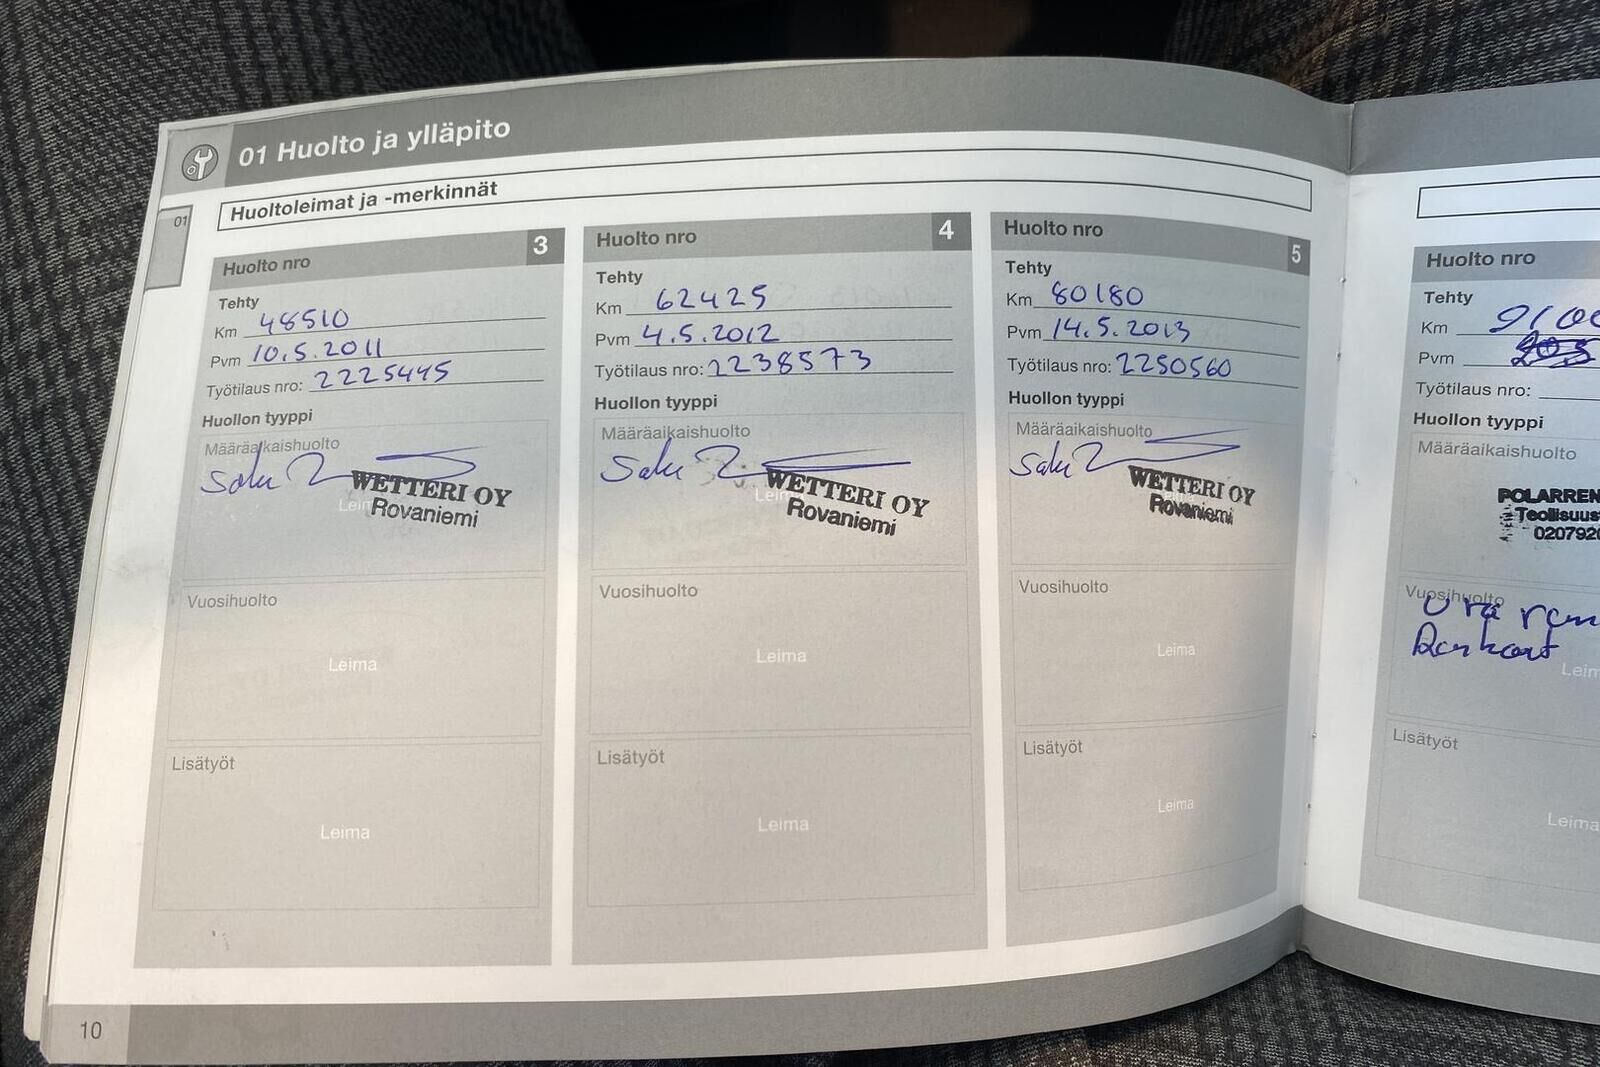 01 Huolto ja ylläpito
01
Huoltoleimat ja -merkinnät
Huolto nro 3
Tehty
Km 48510
Pvm 10.5.2011
Työtilaus nro: 2225445
Huollon tyyppi
Määräaikaishuolto
WETTERI OY
Rovaniemi
Vuosihuolto
Leima
Lisätyöt
Leima
Huolto nro 4
Tehty
Km 62425
Pvm 4.5.2012
Työtilaus nro: 2238573
Huollon tyyppi
Määräaikaishuolto
Leima
WETTERI OY
Rovaniemi
Vuosihuolto
Leima
Lisätyöt
Leima
Huolto nro 5
Tehty
Km 80180
Pvm 14.5.2013
Työtilaus nro: 2250560
Huollon tyyppi
Määräaikaishuolto
WETTERI OY
Rovaniemi
Vuosihuolto
Leima
Lisätyöt
Leima
10
Huolto nro
Tehty
Km
Pvm
Työtilaus nro:
Huollon tyyppi
Määräaikaishuolto
POLARREN
Teollisuus
020792
Vuosihuolto
Leim
Lisätyöt
Leima